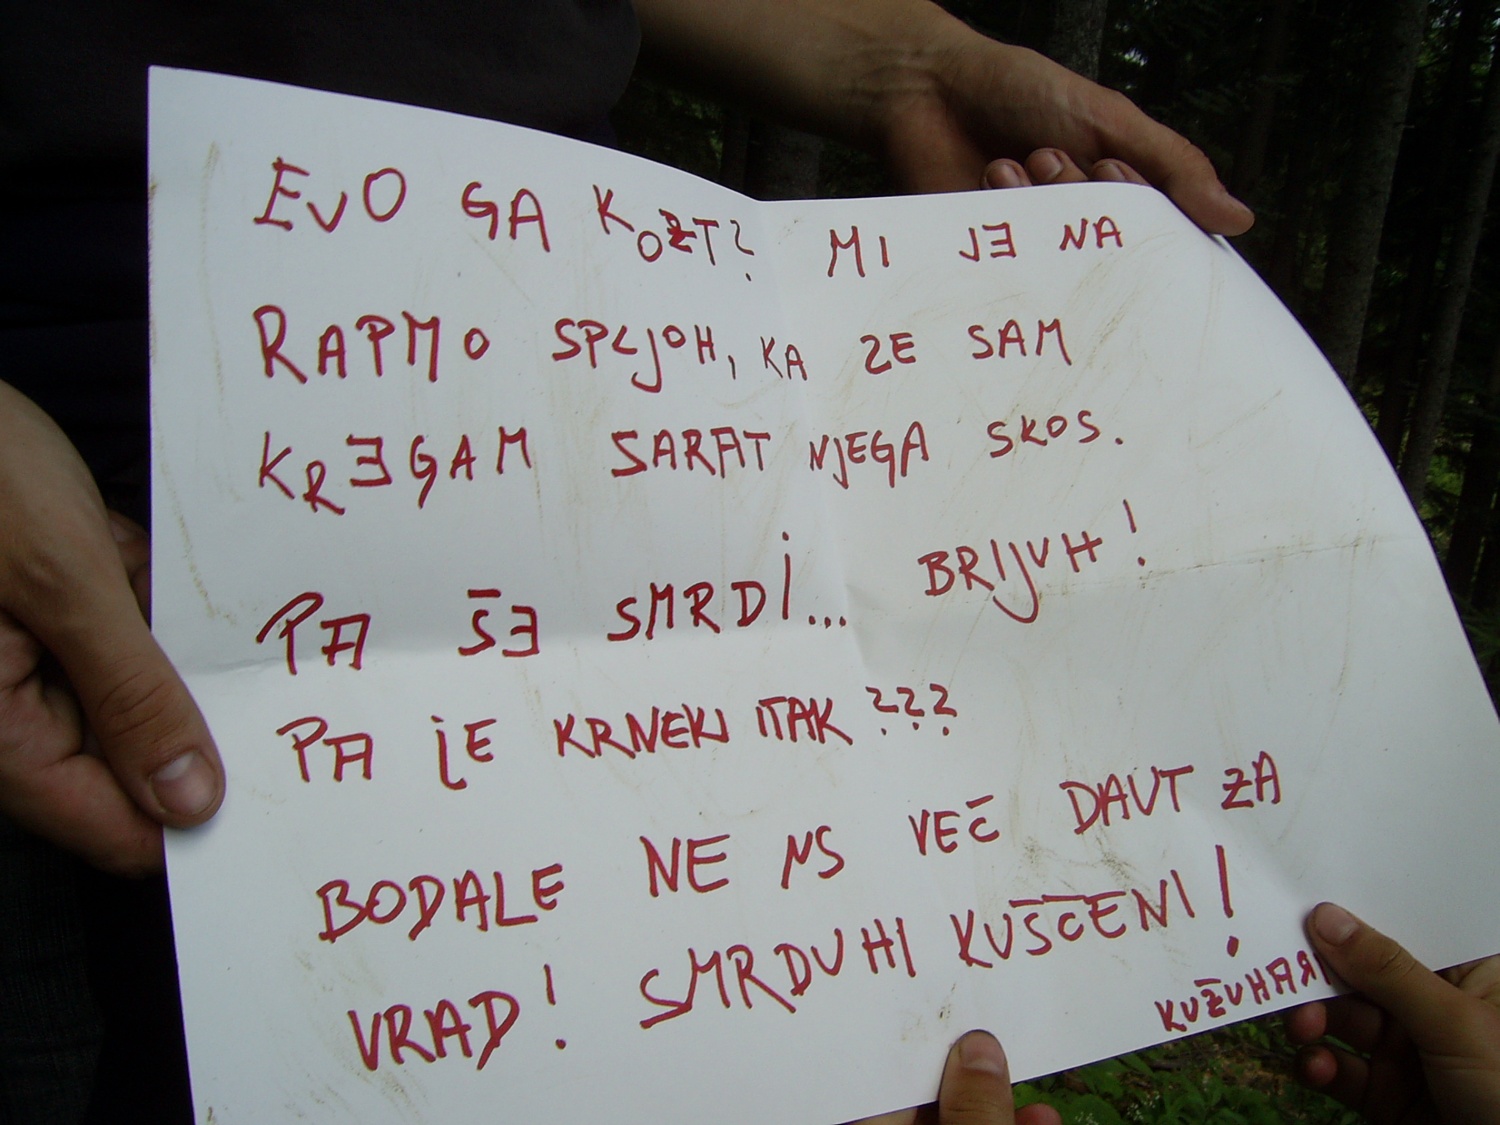 EVO GA KOŽT? MI JE NA
RAPMO SPLJOH, KA ZE SAM
KREGAM SARAT NJEGA SKOS.
PA ŠE SMRDI... BRIJUH!
PA JE KRNEKI ITAK???
BODALE NE NS VEČ DAUT ZA
VRAD! SMRDUHI KUŠČENI!
KUŽUHARI